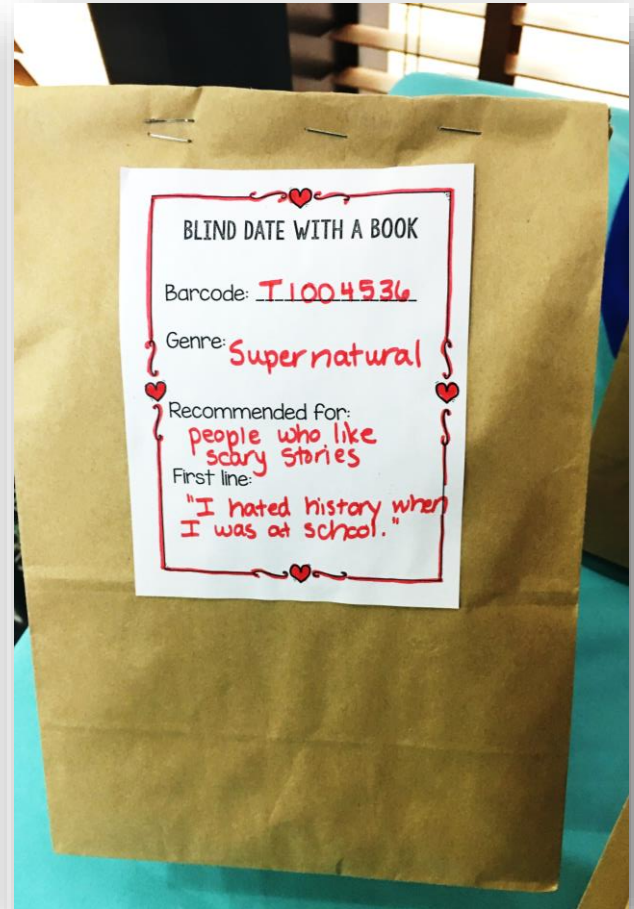 BLIND DATE WITH A BOOK
Barcode: T1004536
Genre: Supernatural
Recommended for:
people who like
scary stories
First line:
"I hated history when
I was at school."